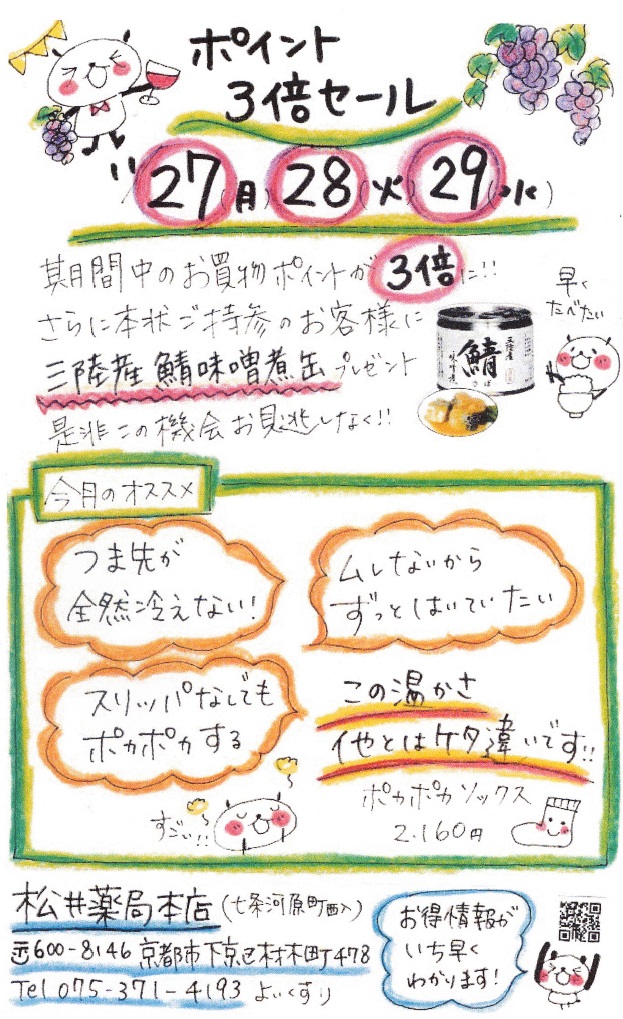 ポイント
3倍セール
27(月)28(火)29(水)
期間中のお買物ポイントが3倍に!!
さらに本状ご持参のお客様に
三陸産 鯖味噌煮缶プレゼント
是非この機会お見逃しなく!!
三陸産
鯖
味噌煮
早く
たべたい
今月のオススメ
つま先が
全然冷えない!
ムレないから
ずっとはいていたい
スリッパなしでも
ポカポカする
この温かさ
他とはケタ違いです!!
すごい!!
ポカポカソックス
2.160円
松井薬局本店(七条河原町西入)
〒600-8146 京都市下京区材木町478
Tel 075-371-4193 よいくすり
お得情報が
いち早く
わかります!